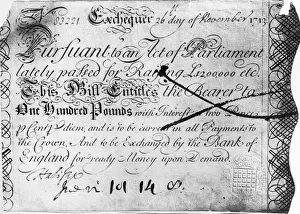 No 83231 Exchequer 26th day of November 1713
Pursuant to an Act of Parliament
lately passed for Raising L1200000 etc.
This Bill Entitles the Bearer to
One Hundred Pounds with Interest at two Pence
p Cent p diem, and is to be currant in all Payments to
the Crown, And to be Exchanged by the Bank of
England for ready Money upon Demand.
10 14 8